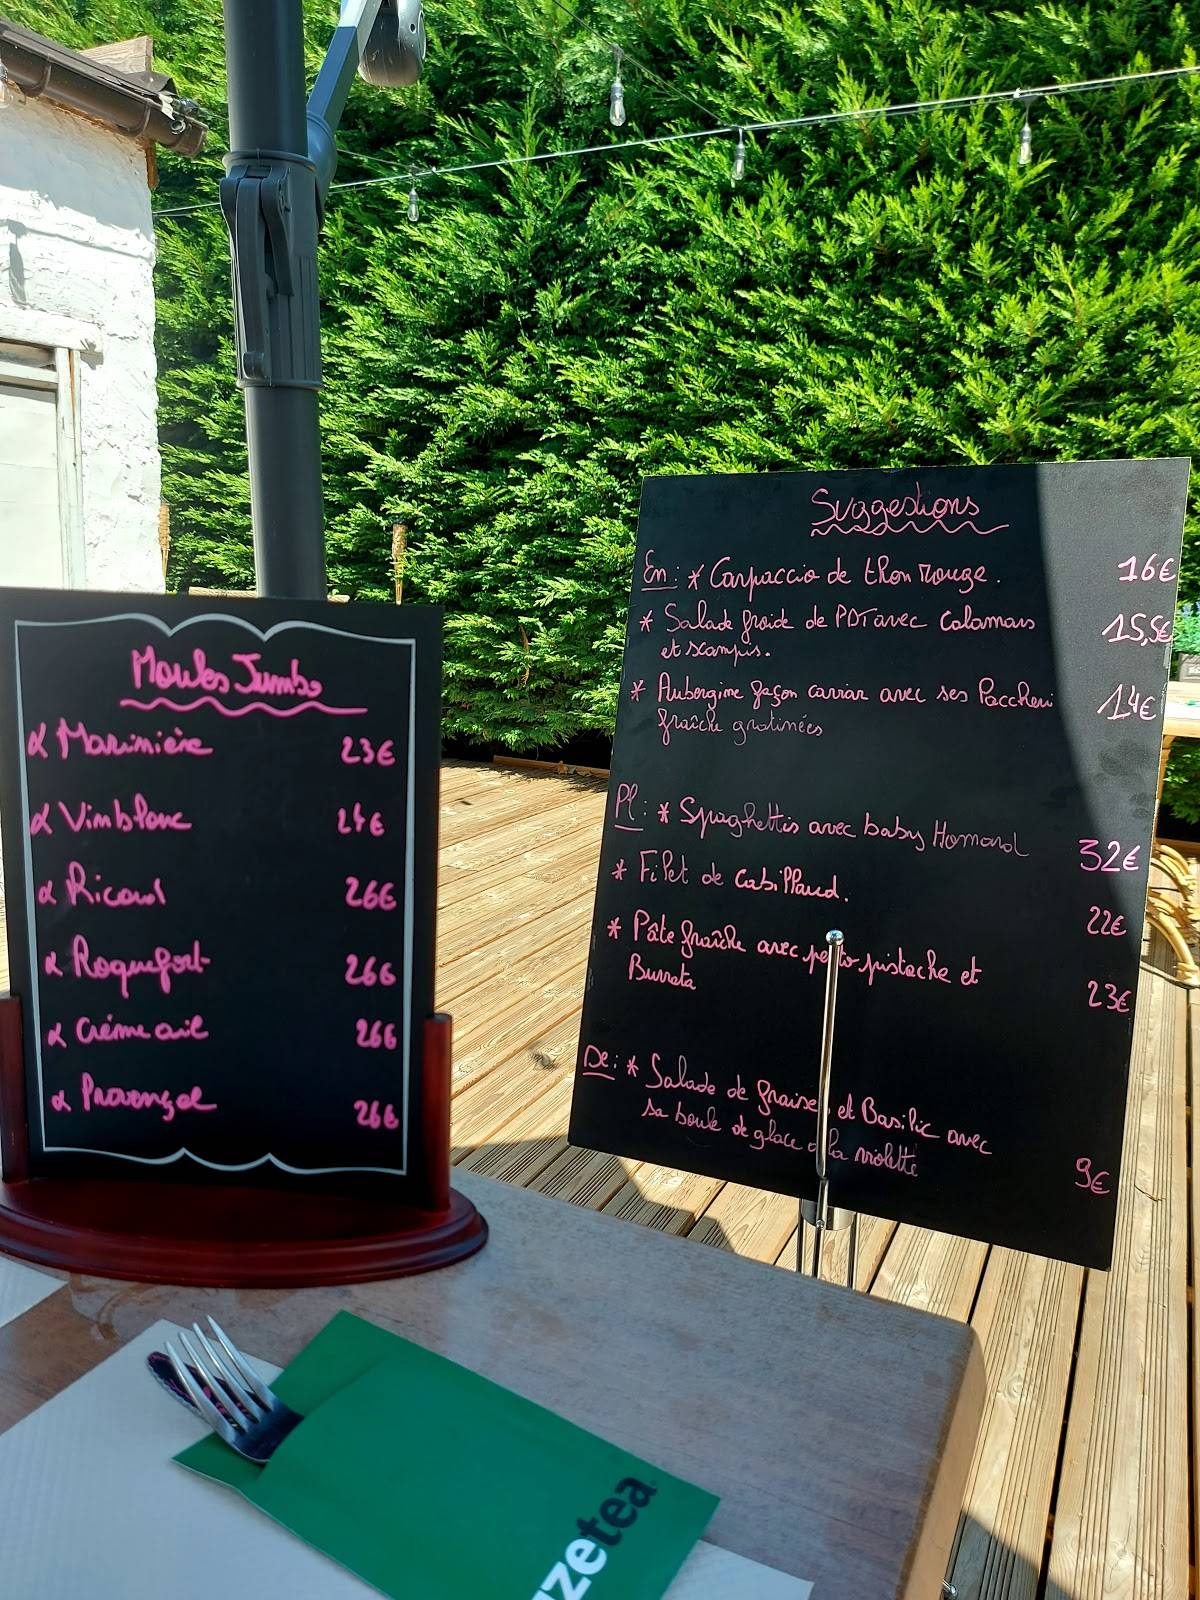 Moules Jumbo
Marinière 23€
Vin blanc 24€
Ricard 26€
Roquefort 26€
Crème ail 26€
Provençal 26€
Suggestions
En: * Carpaccio de thon rouge. 16€
* Salade froide de PDT avec Calamars 15,5€
et scampis.
* Aubergine façon caviar avec ses Paccheri 14€
fraîche gratinées
Pl: * Spaghettis avec baby Homard 32€
* Filet de Cabillaud. 22€
* Pâte fraîche avec pesto pistache et
Burrata 23€
De: * Salade de fraises et Basilic avec
sa boule de glace à la violette 9€
uzetea